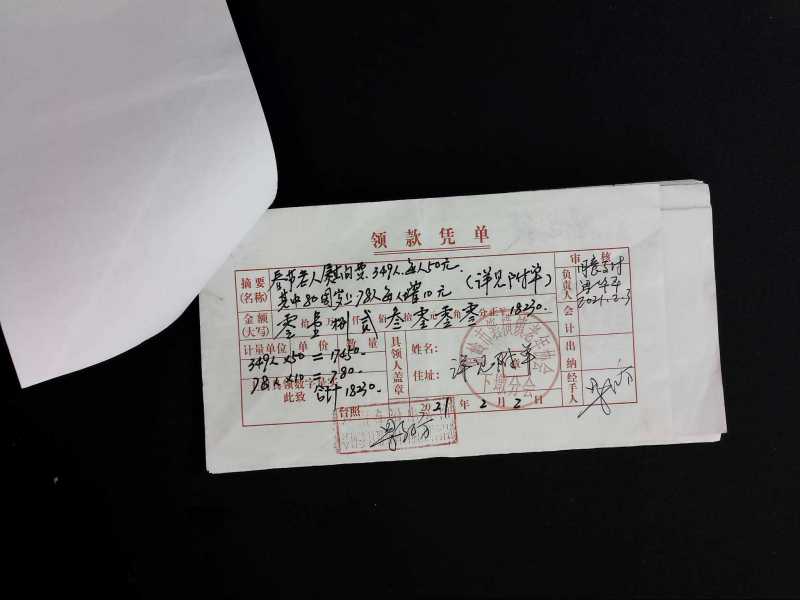 领款凭单
摘要(名称) 春节老人慰问费.349人.每人50元.
其中80周岁上78人每人增10元 (详见附单)
金额(大写) 零拾壹万捌仟贰佰叁拾零元零角零分 18230.
计量单位 单价 数量
349人×50=17450.
78人×10=780.
合计18230.
此致
台照
具领人盖章
姓名:
住址:
详见附单
下塘分会
2021年2月2日
审核
负责人
2021.2.3
会计
出纳
经手人